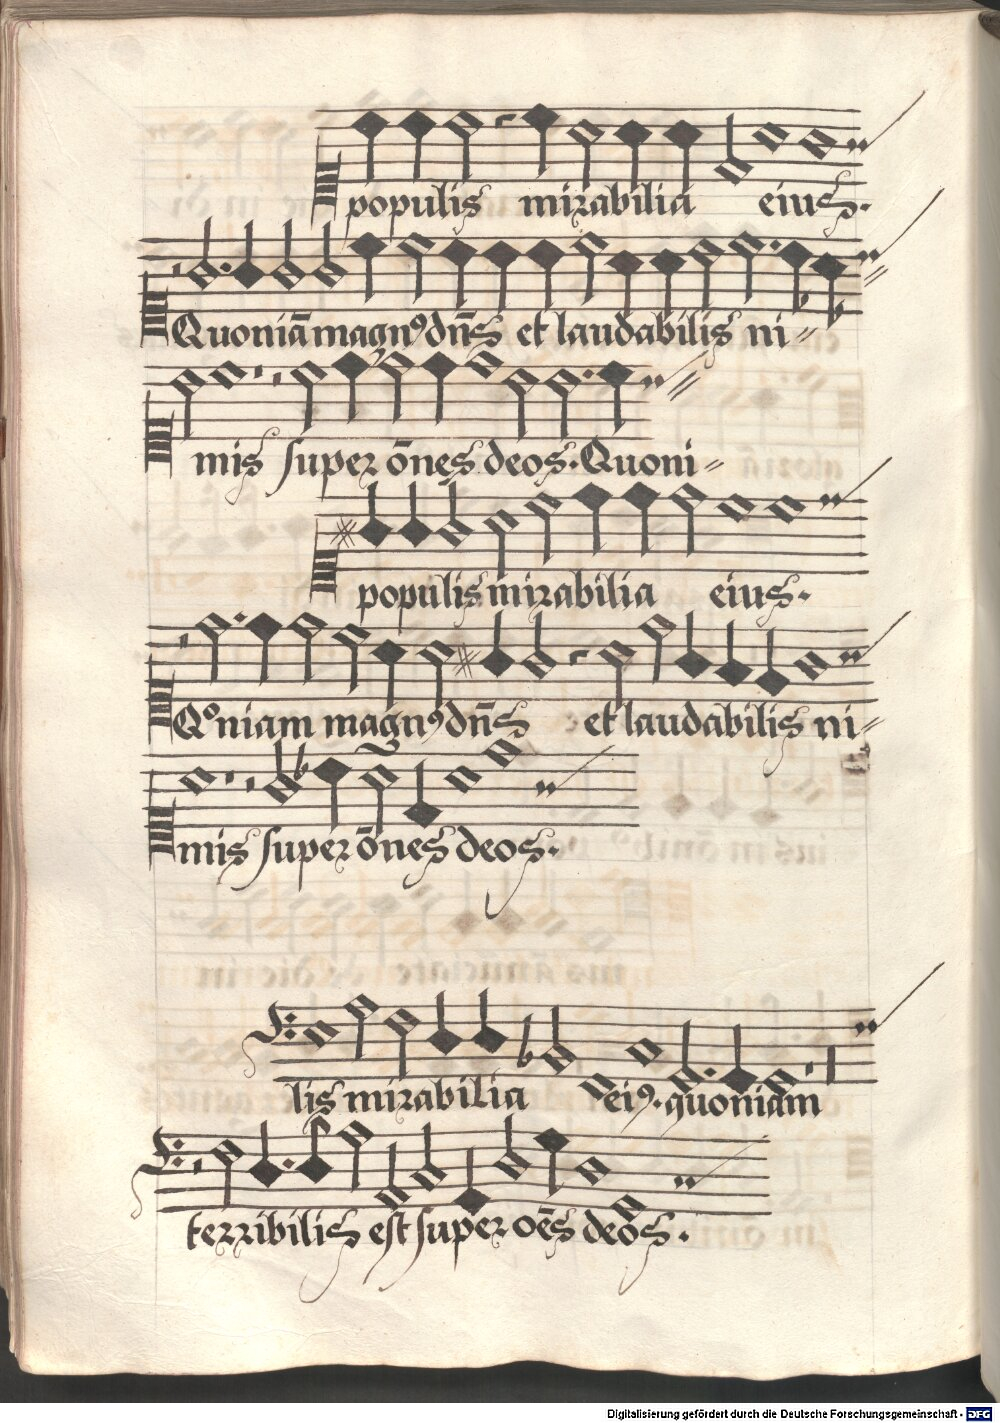 populis mirabilia eius.
Quoniā magnꝰ dn̄s et laudabilis ni=
mis super ōnes deos. Quoni=
populis mirabilia eius.
Qͦniam magnꝰ dn̄s et laudabilis ni=
mis super ōnes deos.
lis mirabilia eiꝰ. quoniam
terribilis est super oēs deos.
Digitalisierung gefördert durch die Deutsche Forschungsgemeinschaft - DFG